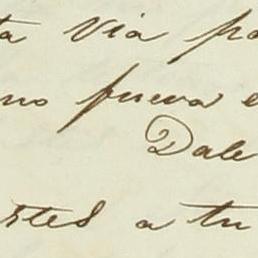 ta via pa
no fueva e
Dale
stes a tu